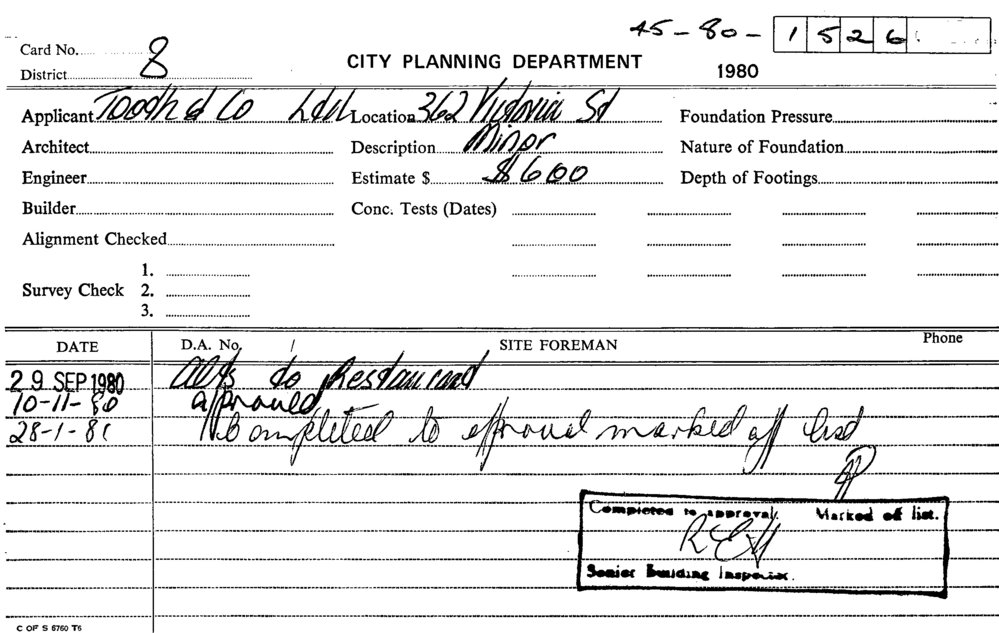 45-80- 1526
Card No. 8
District
CITY PLANNING DEPARTMENT
1980
Applicant Tooth & Co Ltd Location 362 Victoria St Foundation Pressure
Architect Description Minor Nature of Foundation
Engineer Estimate $ $600 Depth of Footings
Builder Conc. Tests (Dates)
Alignment Checked
1.
Survey Check 2.
3.
DATE D.A. No. / SITE FOREMAN Phone
29 SEP 1980 Alts to Restaurant
10-11-80 approved
28-1-81 Completed to approval marked off list
Completed to approval. Marked off list.
Senior Building Inspector.
C OF S 6760 T6